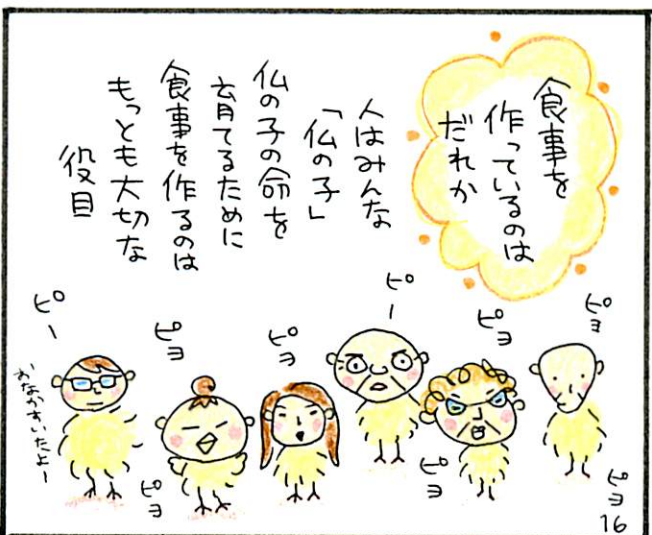 食事を
作っているのは
だれか
人はみんな
「仏の子」
仏の子の命を
育てるために
食事を作るのは
もっとも大切な
役目
ピヨ
ピヨ
ピー
ピヨ
ピヨ
ピー
おなかすいたよー
ピヨ
ピヨ
ピヨ
16